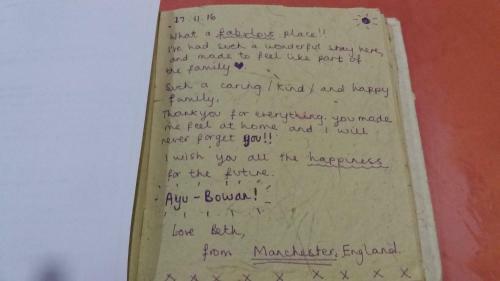 27.11.16
What a fabulous place!!
I've had such a wonderful stay here,
and made to feel like part of
the family ♥.
Such a caring / kind / and happy
family.
Thankyou for everything. you made
me feel at home and I will
never forget you!!
I wish you all the happiness
for the future.
Ayu-Bowan!
Love Beth,
from Manchester, England.
x x x x x x x x